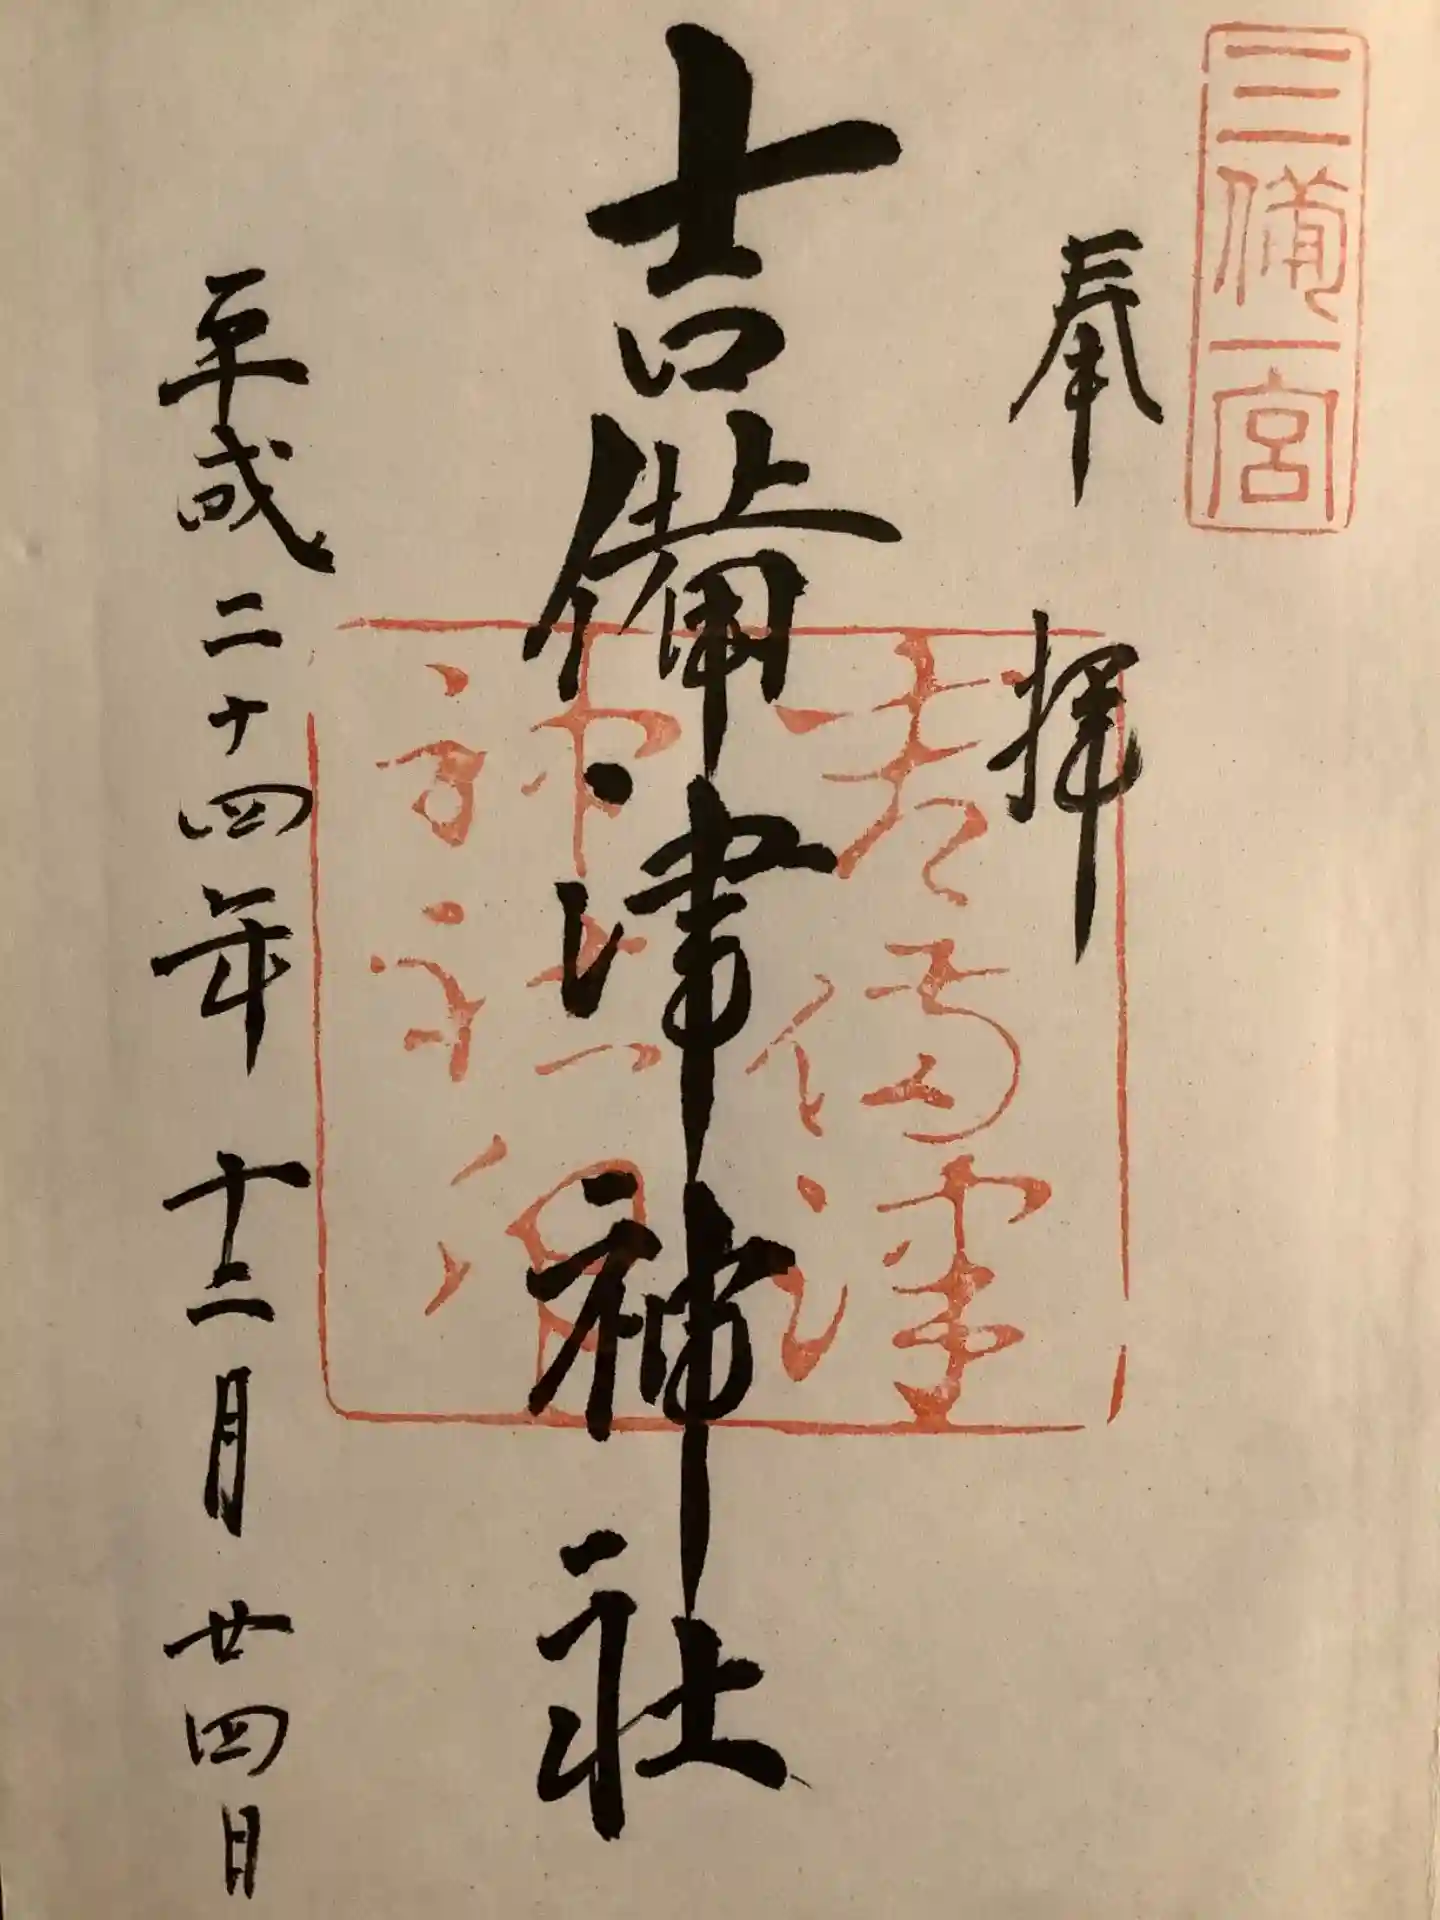 三備一宮
奉拝
吉備津神社
吉備津
神社
平成二十四年十二月廿四日